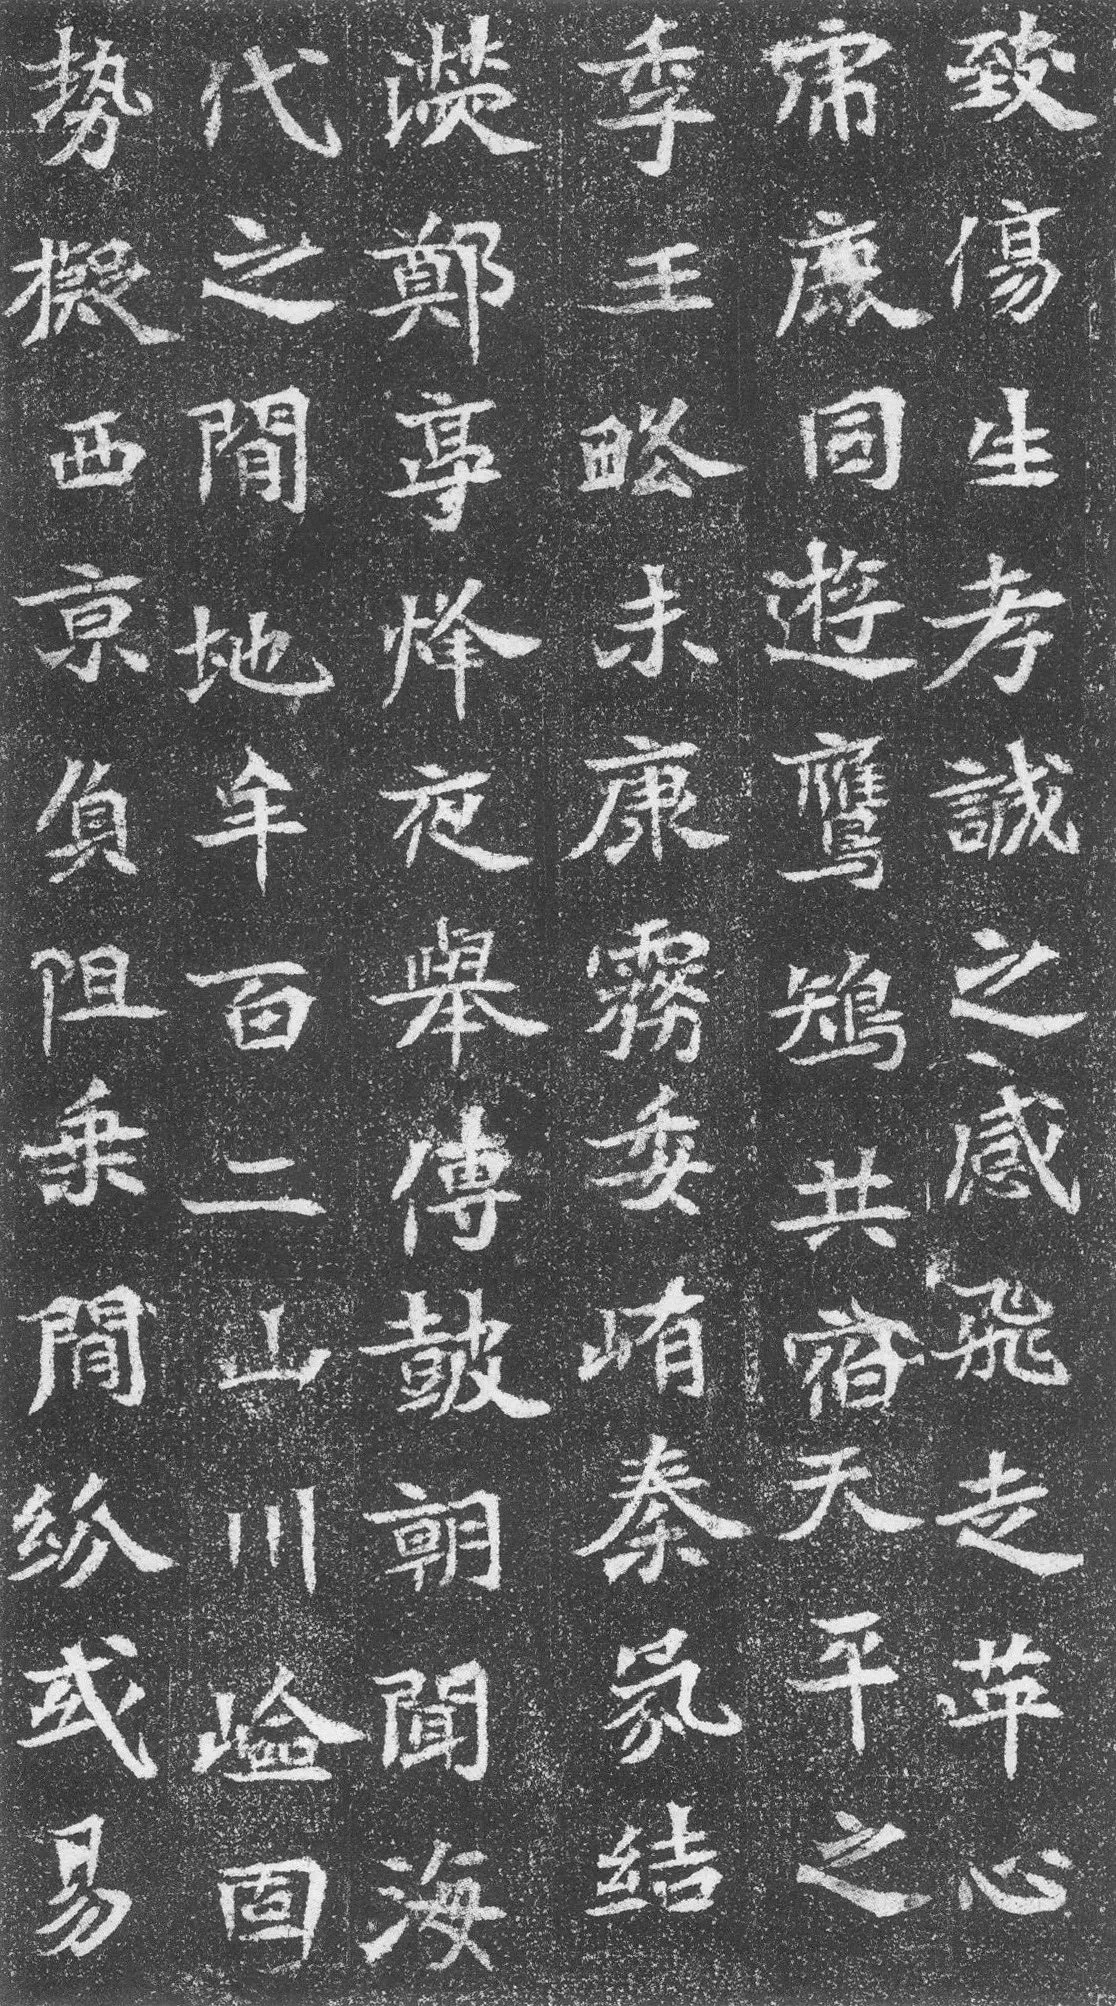 致傷生孝誠之感飛走革心
帝廌同遊鷹鴆共宿天平之
季王略未康霧委崤秦氛結
滎鄭亭烽夜舉傳鼓朝聞海
代之間地牟百二山川嶮固
勢擬西京負阻乘間紛或易